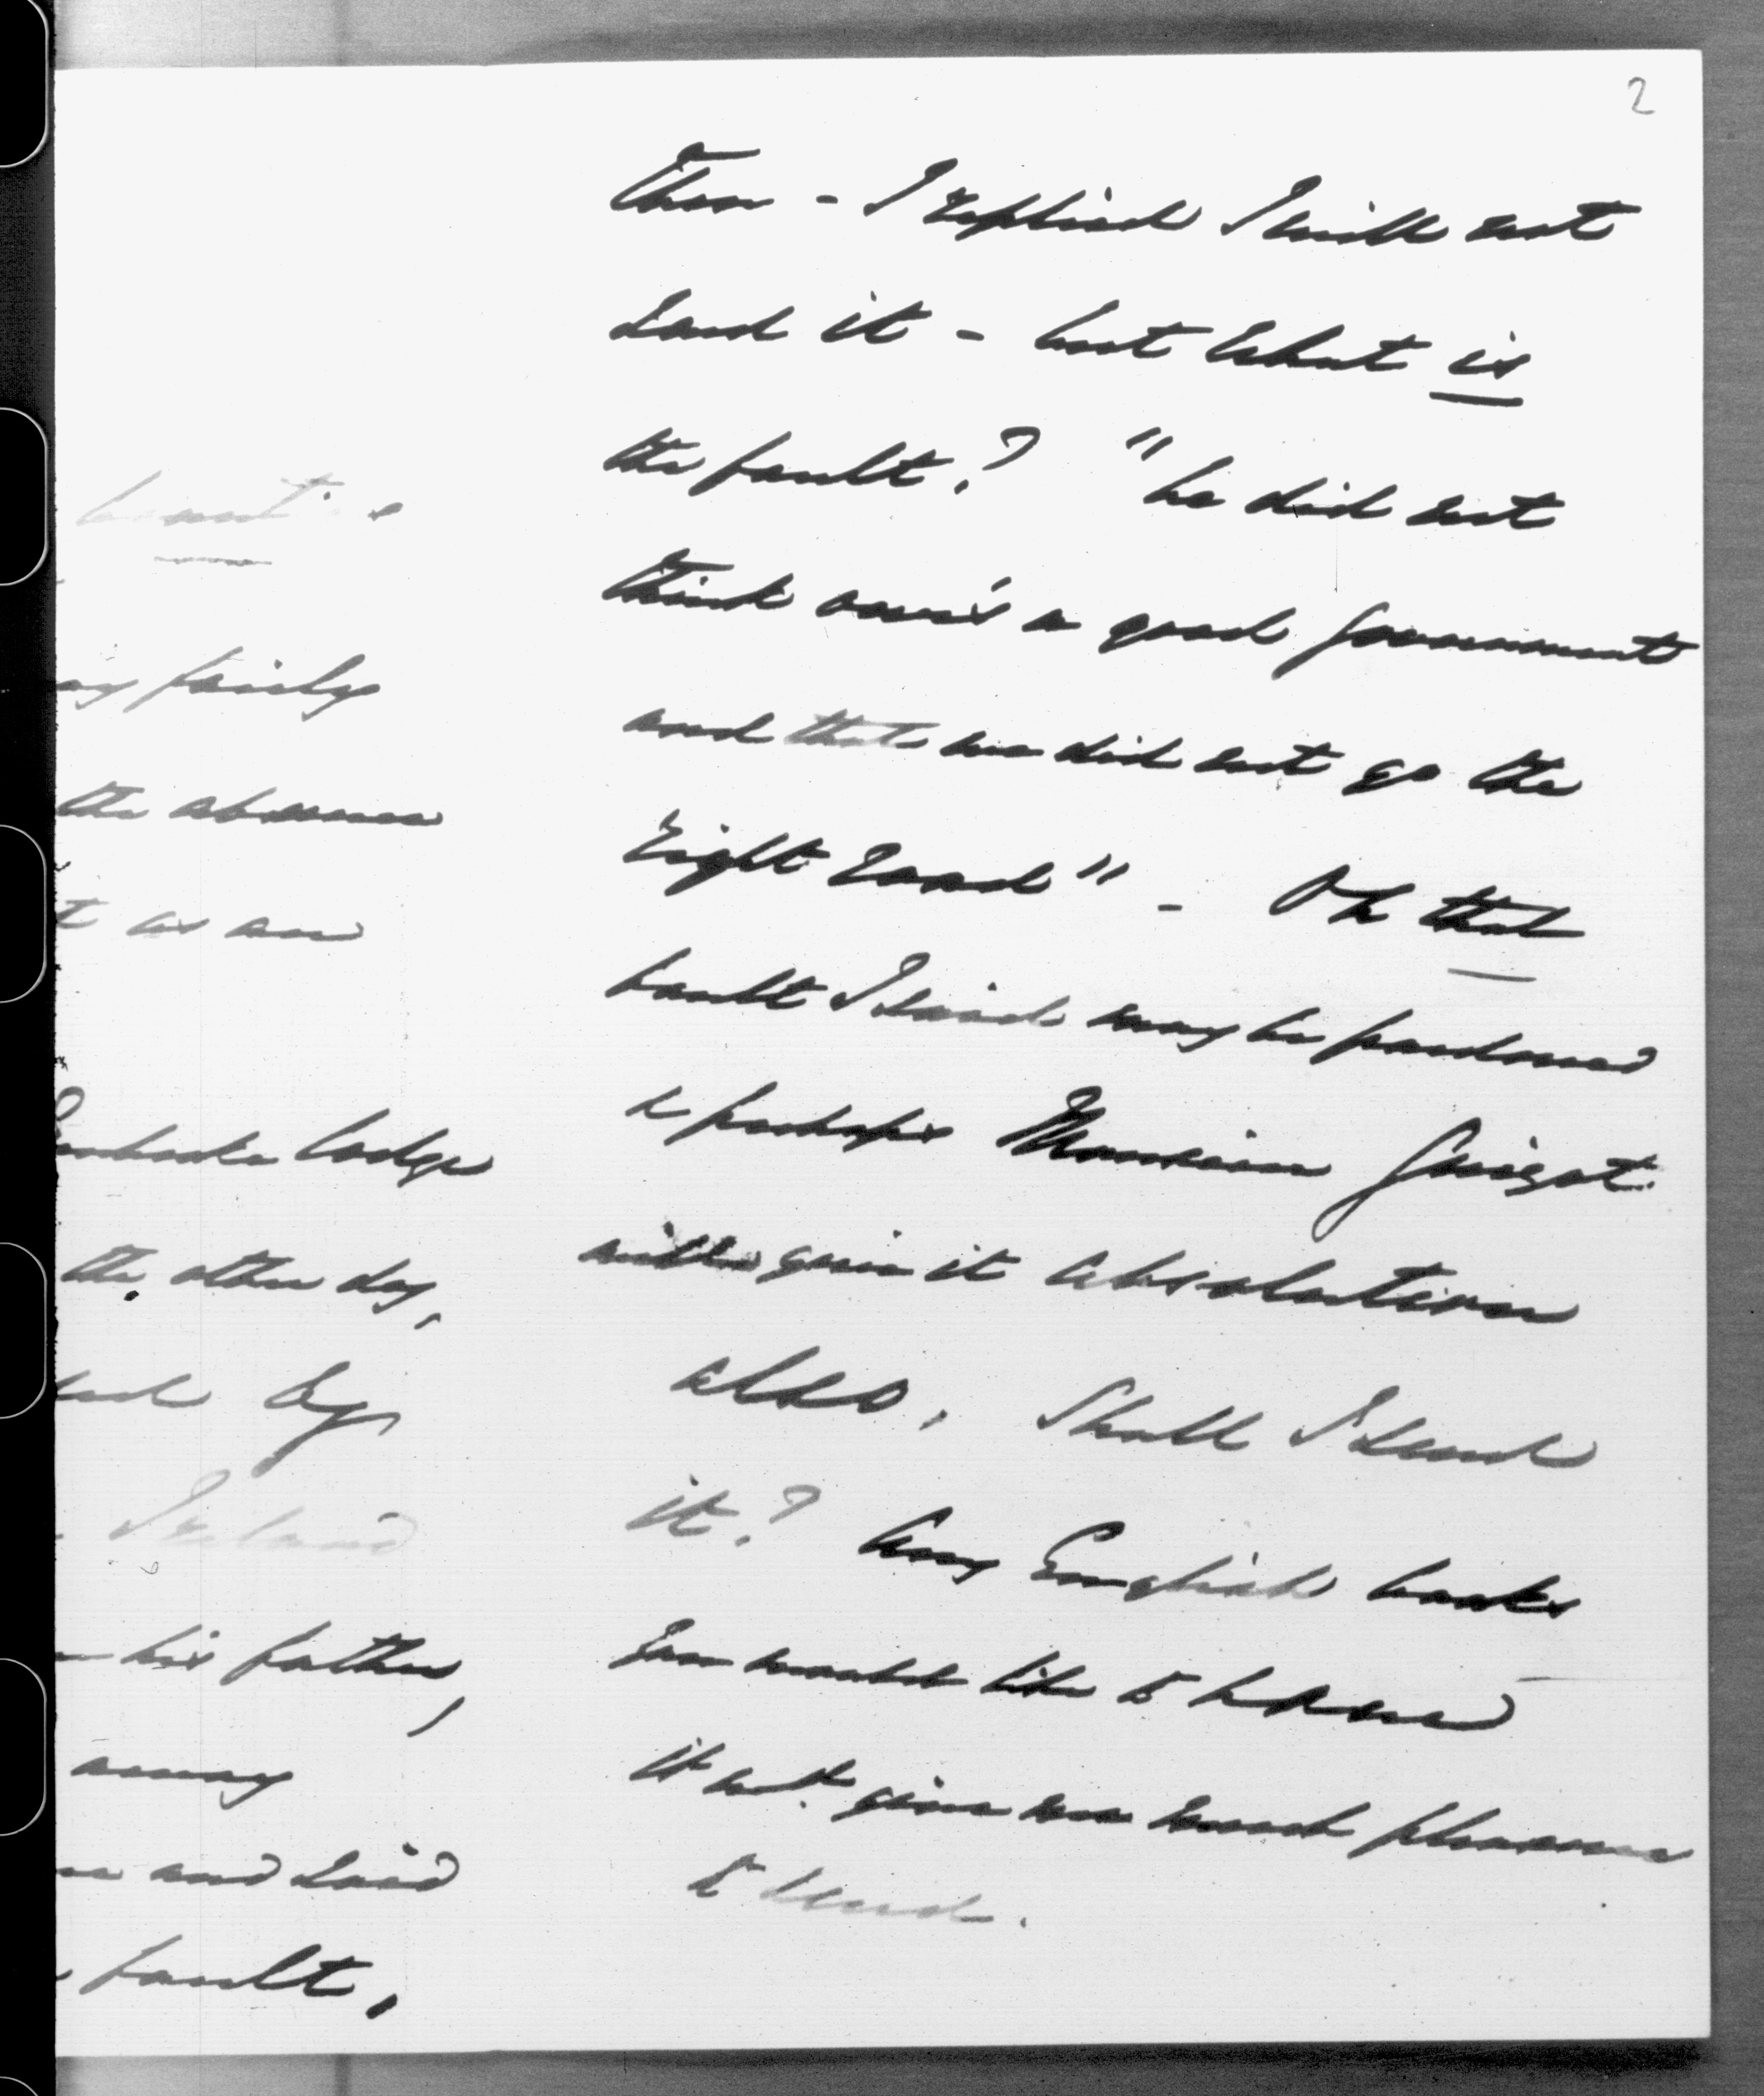 2
bount.
ay fairly
the absence
t as an
Pembroke lodge
the other day,
by
Ireland
his father,
away
and said
fault,
then - I replied I will not
send it - but what is
the fault? "he did not
think our's a good Government
and that we did not go the
right road" - Oh that
fault I said may be pardoned
& perhaps Monsieur Guizot
will give it absolution
also, Shall I send
it? Any English books
you would like to have
it wd. give me much pleasure
to send.